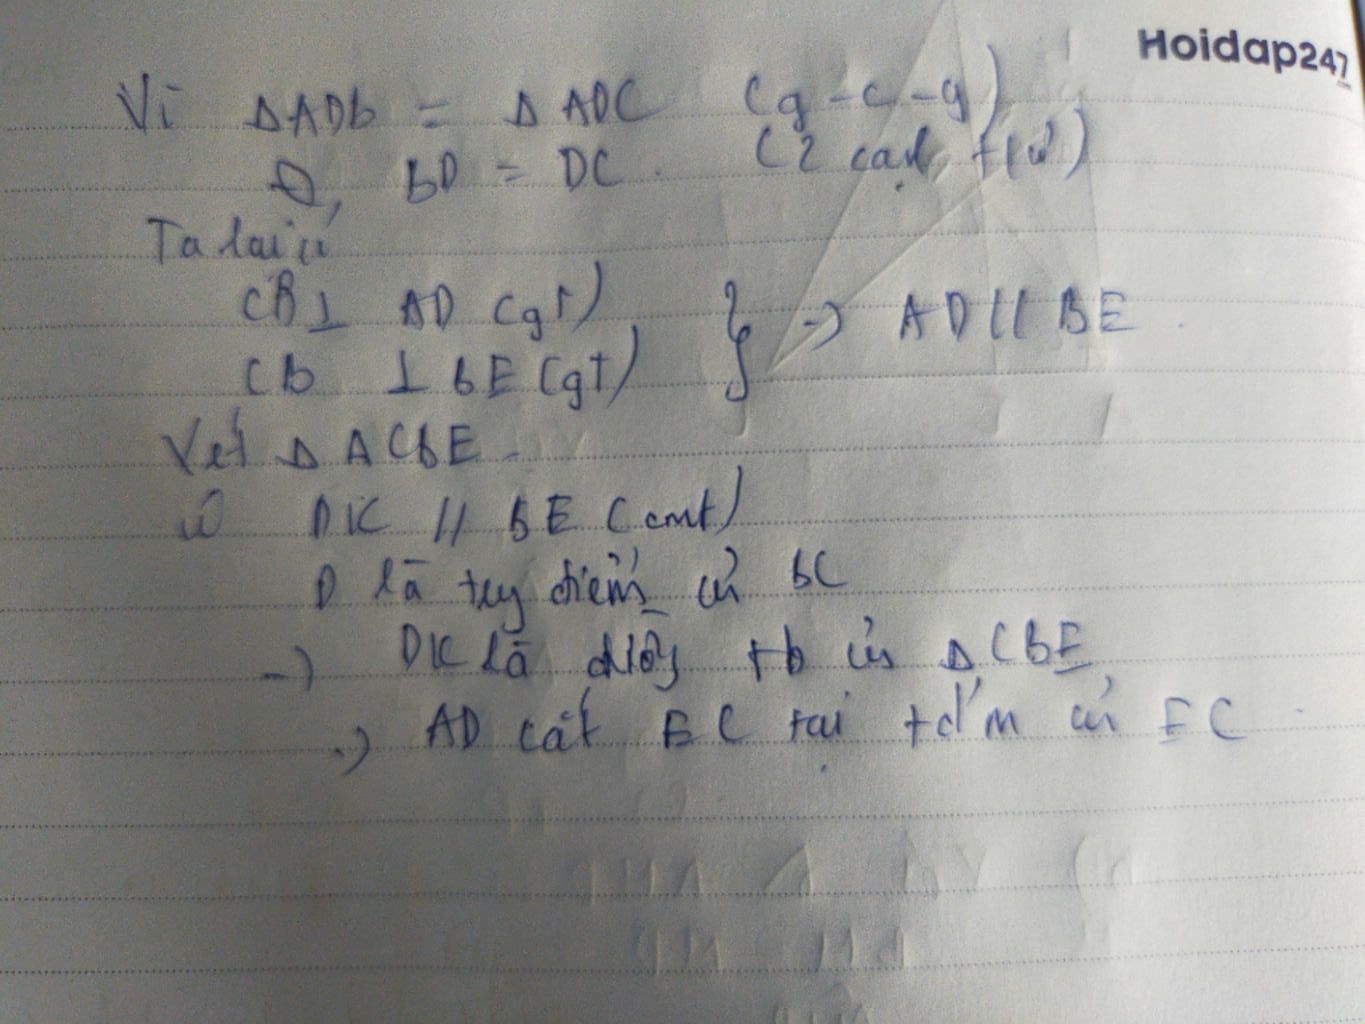 Hoidap247
Vì ΔADb = ΔADC (g-c-g)
⇒ bD = DC. (2 cạnh tứ)
Ta lại có
CB ⊥ AD (gt)
Cb ⊥ bE (gt) } → AD // BE.
Xét Δ ACbE
có DK // BE (cmt)
D là tug điểm củ bC
→ DK là đườg tb củ Δ CbE
→ AD cắt EC tại tđ'm củ EC